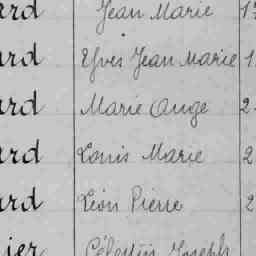 ard Jean Marie 1
ard Yves Jean Marie 1
ard Marie Ange 2
ard Louis Marie 2
ard Léon Pierre 2
ier Célestin Joseph